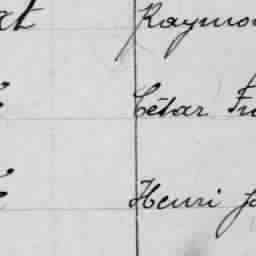 at Raymo
César Fr
Henri Ja